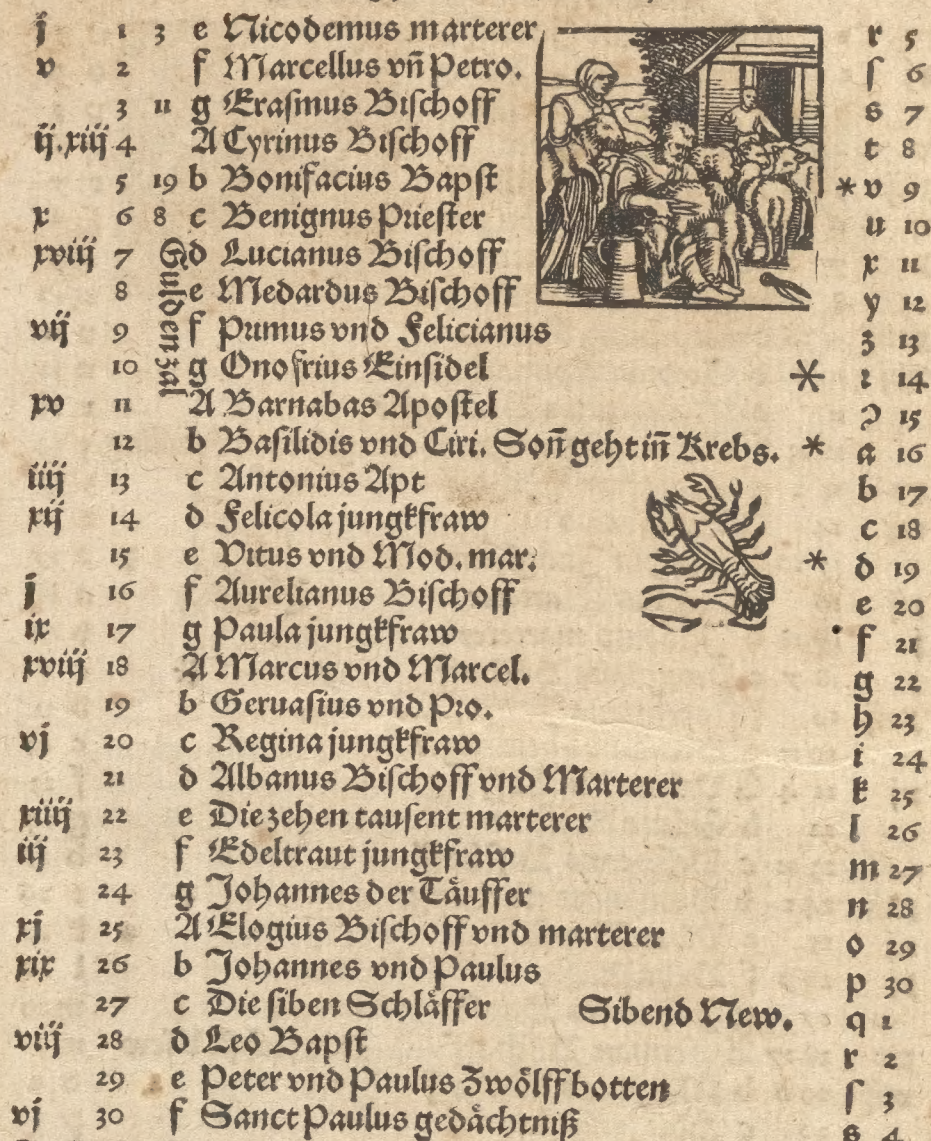 j 1 3 e Nicodemus marterer r 5
v 2 f Marcellus vn̄ Petro. ſ 6
3 11 g Eraſmus Biſchoff s 7
ij.xiij 4 A Cyrinus Biſchoff t 8
5 19 b Bonifacius Bapſt * v 9
x 6 8 c Benignus Prieſter u 10
xviij 7 d Lucianus Biſchoff x 11
8 e Medardus Biſchoff y 12
vij 9 f Primus vnd Felicianus z 13
10 g Onofrius Einſidel * ꝛ 14
xv 11 A Barnabas Apoſtel ꝯ 15
12 b Baſilidis vnd Ciri. Son̄ geht in̄ Krebs. * a 16
iiij 13 c Antonius Apt b 17
xij 14 d Felicola jungkfraw c 18
15 e Vitus vnd Mod. mar. * d 19
j 16 f Aurelianus Biſchoff e 20
ix 17 g Paula jungkfraw f 21
xviij 18 A Marcus vnd Marcel. g 22
19 b Geruaſius vnd Pro. h 23
vj 20 c Regina jungkfraw i 24
21 d Albanus Biſchoff vnd Marterer k 25
xiiij 22 e Die zehen tauſent marterer l 26
iij 23 f Edeltraut jungkfraw m 27
24 g Johannes der Täuffer n 28
xj 25 A Elogius Biſchoff vnd marterer o 29
xix 26 b Johannes vnd Paulus p 30
27 c Die ſiben Schläffer Sibend New. q 1
viij 28 d Leo Bapſt r 2
29 e Peter vnd Paulus Zwölffbotten ſ 3
vj 30 f Sanct Paulus gedächtniß s 4
Guldenzal